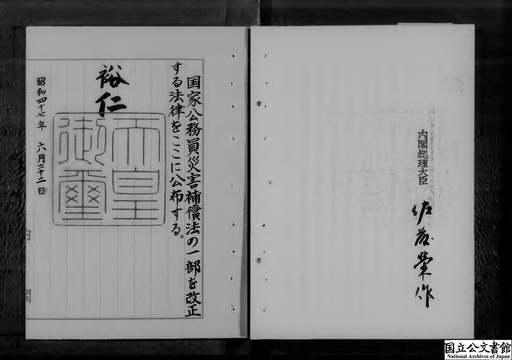 国家公務員災害補償法の一部を改正
する法律をここに公布する。
裕仁
天皇
御璽
昭和四十七年 六月二十二日
内閣総理大臣 佐藤榮作
国立公文書館
National Archives of Japan